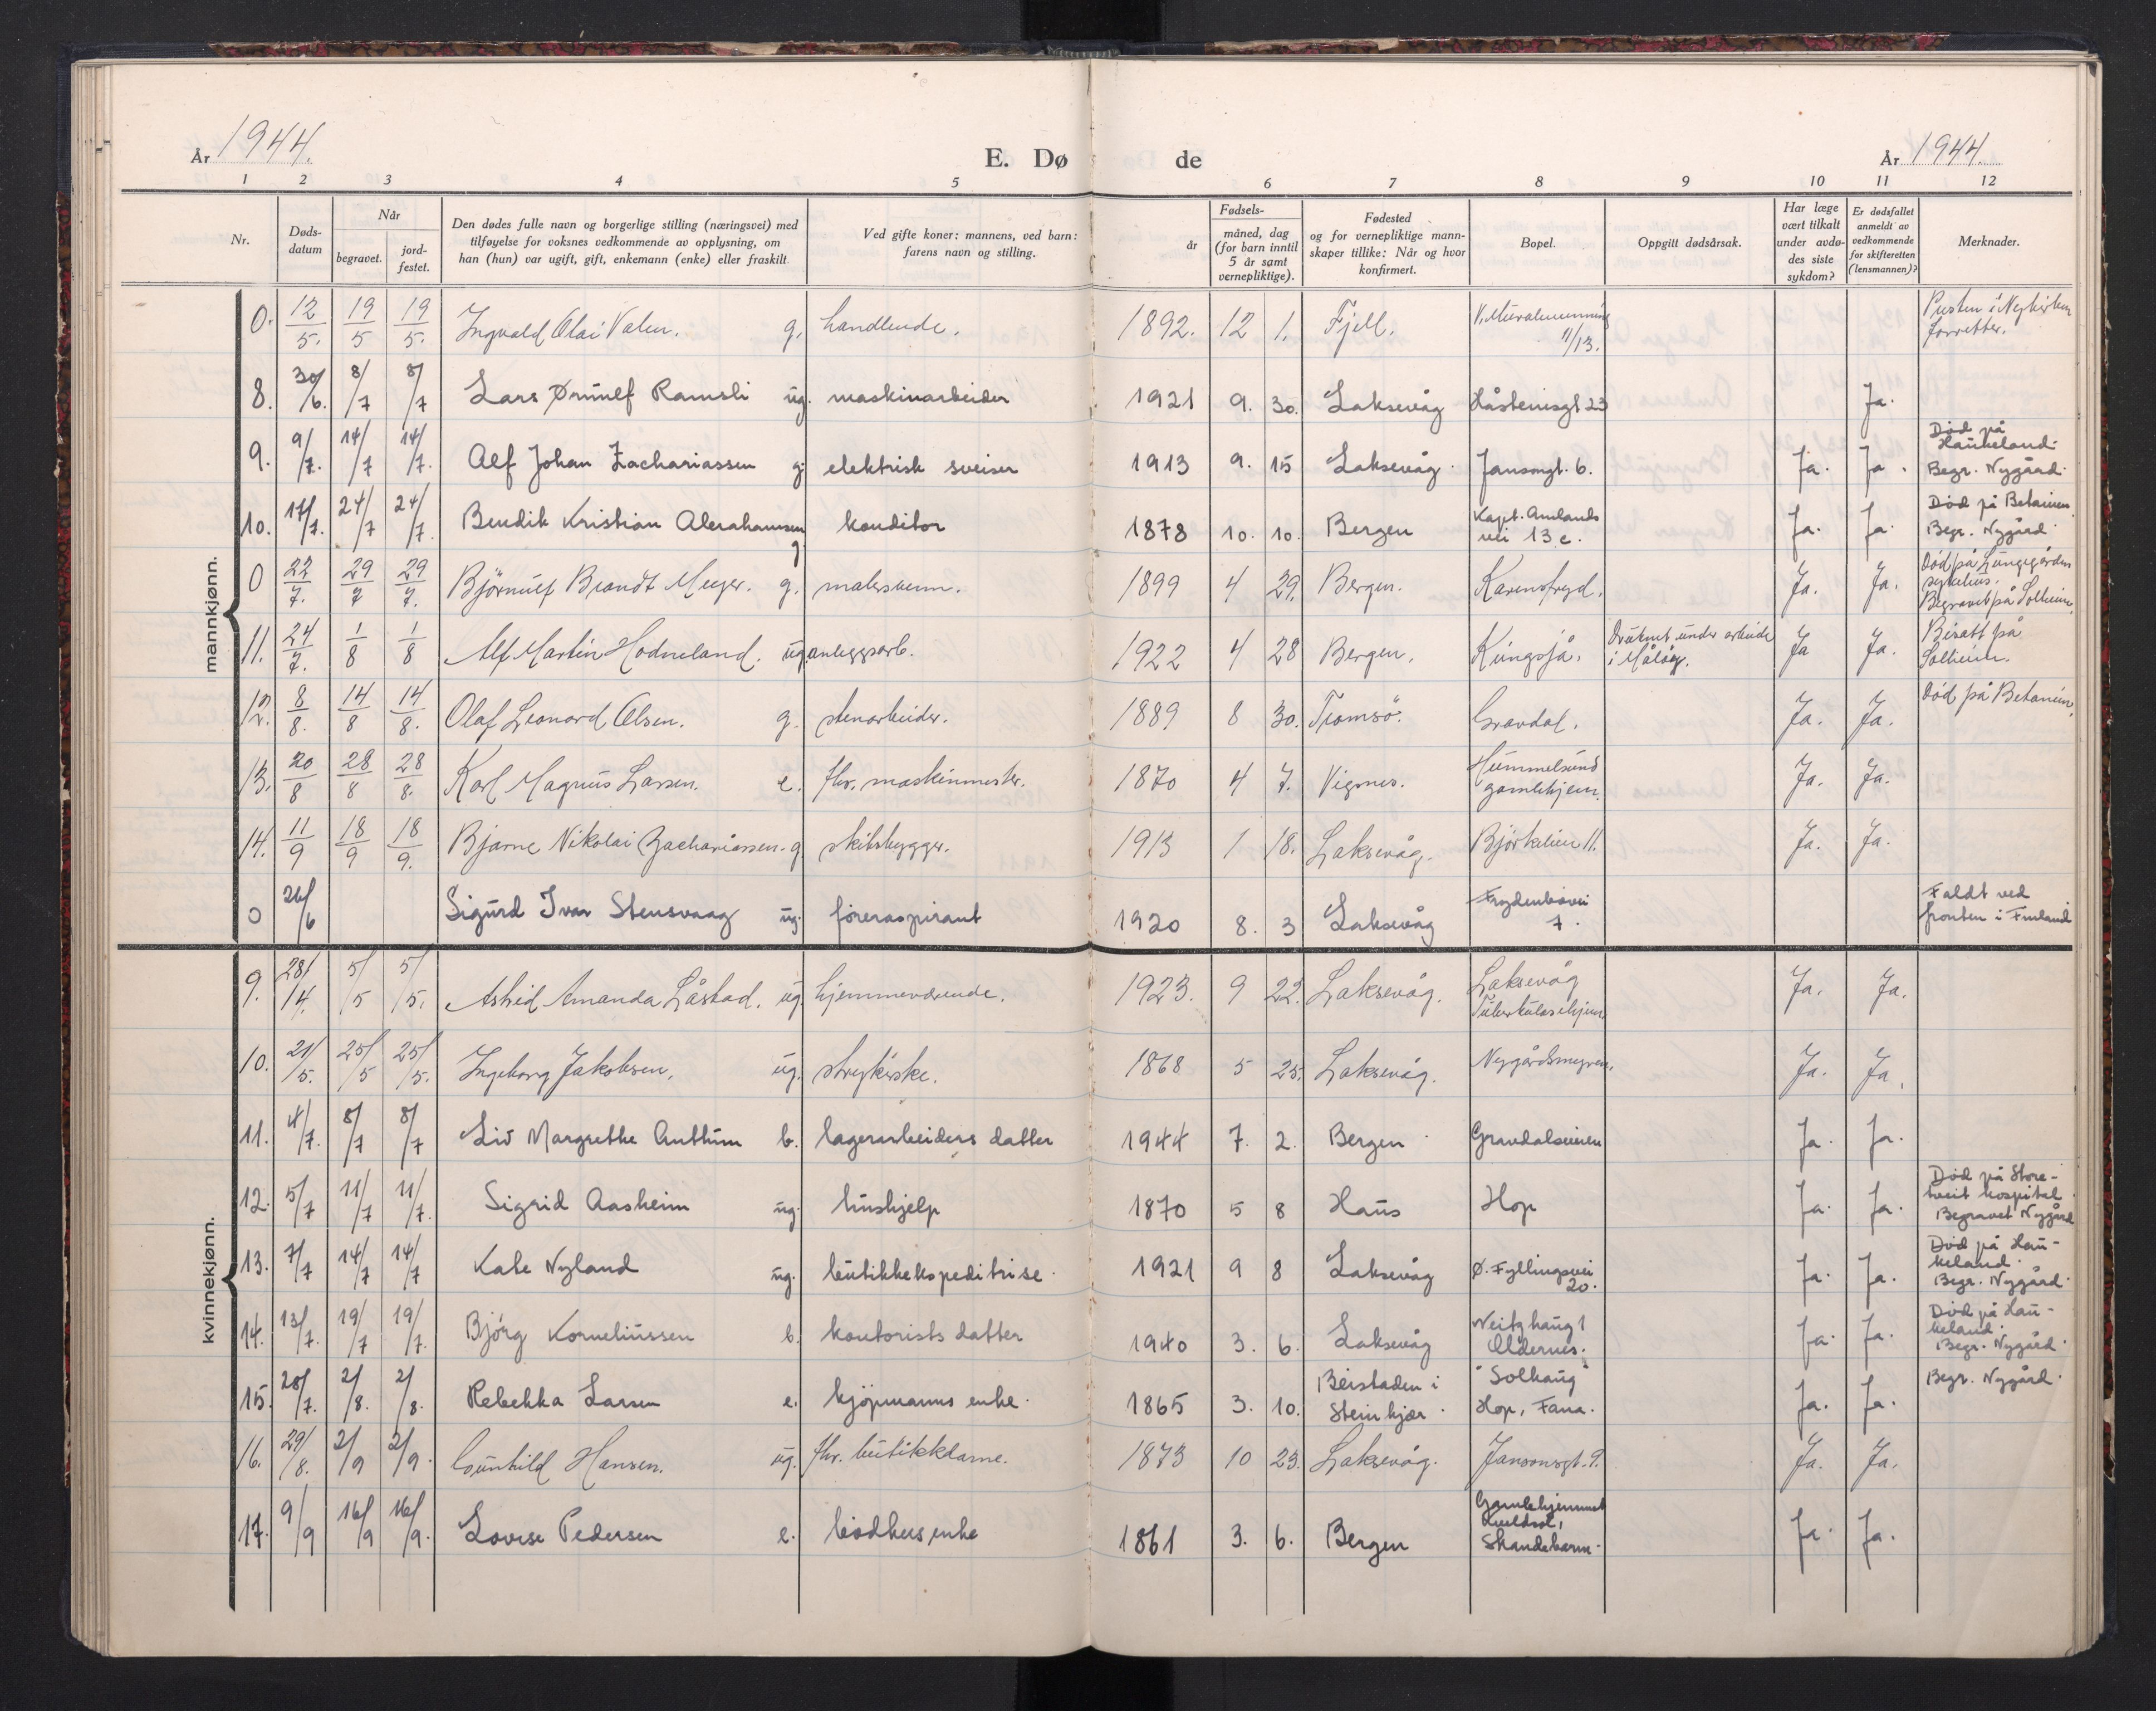 År 1944.
E. Dø de
År 1944.
1 2 3 4 5 6 7 8 9 10 11 12
Nr.
Døds-
datum
Når
begravet.
jord-
festet.
Den dødes fulle navn og borgerlige stilling (næringsvei) med
tilføyelse for voksnes vedkommende av opplysning, om
han (hun) var ugift, gift, enkemann (enke) eller fraskilt
Ved gifte koner: mannens, ved barn:
farens navn og stilling.
Fødsels-
år
måned, dag
(for barn inntil
5 år samt
vernepliktige).
Fødested
og for vernepliktige mann-
skaper tillike: Når og hvor
konfirmert.
Bopel.
Oppgitt dødsårsak.
Har læge
vært tilkalt
under avdø-
des siste
sykdom?
Er dødsfallet
anmeldt av
vedkommende
for skifteretten
(lensmannen)?
Merknader.
mannkjønn.
0. 12/5. 19/5 19/5. Ingvald Olai Valen. g. handlende. 1892. 12 1. Fjell. 11/13. forretter.
8. 30/6. 8/7 8/7 Lars Ørnulf Ramsli ug. maskinarbeider 1921 9. 30. Laksevåg Håsteinsgt 23 Ja.
9. 9/7. 14/7 14/7. Alf Johan Zachariassen g. elektrisk sveiser 1913 9. 15 Laksevåg Jansongt. 6. Ja. Ja. Død på
Haukeland.
Begr. Nygård.
10. 17/7. 24/7 24/7. Bendik Kristian Abrahamsen g. konditor 1878 10. 10. Bergen Kapt. Amlands
vei 13 c. Ja. Ja. Død på Betanien
Begr. Nygård
0 22/7. 29/7 29/7. Bjørnulf Brandt Meyer. g. malersvenn. 1899 4 29. Bergen. Karensfryd. Ja. Ja. Død på Lungegården
sykehus.
Begravet på Solheim.
11. 24/7. 1/8 1/8 Alf Martin Hodneland. ug. anleggsarb. 1922 4 28 Bergen. Kringsjå. Druknet under arbeide
i Måløy. Ja Ja. Bisatt på
Solheim.
12. 8/8. 14/8 14/8. Olaf Leonard Olsen. g. stenarbeider. 1889 8 30. Tromsö. Gravdal. Ja. Ja. Död på Betanien.
13. 20/8 28/8 28/8. Karl Magnus Larsen. e. fhv. maskinmester. 1870 4 7. Vigsnes. Hummelsund
gamlehjem. Ja. Ja.
14. 11/9 18/9 18/9. Bjarne Nikolai Zachariassen. g. skibsbygger. 1913 1 18. Laksevåg. Björkelien 11. Ja. Ja.
0 26/6 Sigurd Ivar Stensvaag ug. föreraspirant 1920 8. 3 Laksevåg Frydenbövei
7. Faldt ved
fronten i Finland
kvinnekjønn.
9. 28/4. 5/5 5/5. Astrid Amanda Låstad. ug. hjemmeværende. 1923. 9 22. Laksevåg. Laksevåg
Tuberkulosehjem Ja. Ja.
10. 21/5. 25/5 25/5. Ingeborg Jakobsen. ug. strykerske. 1868 5 25. Laksevåg. Nygårdsmyren. Ja. Ja.
11. 4/7. 8/7 8/7 Liv Margrethe Anthun b. lagerarbeiders datter 1944 7. 2. Bergen Gravdalsveien Ja. Ja.
12. 5/7 11/7 11/7. Sigrid Aasheim ug. hushjelp 1870 5 8 Haus Hop Ja. Ja. Død på Store-
tveit hospital.
Begravet Nygård
13. 7/7 14/7 14/7 Kate Nyland ug. butikkekspeditrise. 1921 9 8 Laksevåg Ø. Fyllingsvei
20. Ja. Ja. Død på Hau-
keland.
Begr. Nygård.
14. 13/7. 19/7 19/7. Bjørg Korneliussen b. kontorists datter 1940 3. 6. Laksevåg
Oldernes. Ja. Ja. Død på Hau-
keland.
Begr. Nygård.
15. 28/7. 2/8. 2/8. Rebekka Larsen e. kjöpmanns enke. 1865 3. 10. Beistaden i
Steinkjær. "Solhaug"
Hop, Fana. Ja. Ja. Begr. Nygård.
16. 29/8. 2/9 2/9. Gunhild Hansen. ug. fhv. butikkdame. 1873 10 23. Laksevåg. Jansonsgt. 9. Ja. Ja.
17. 9/9 16/9 16/9. Lovise Pedersen e. 1861 3. 6. Bergen Gamlehjemmet
Kveldsol,
Ja. Ja.